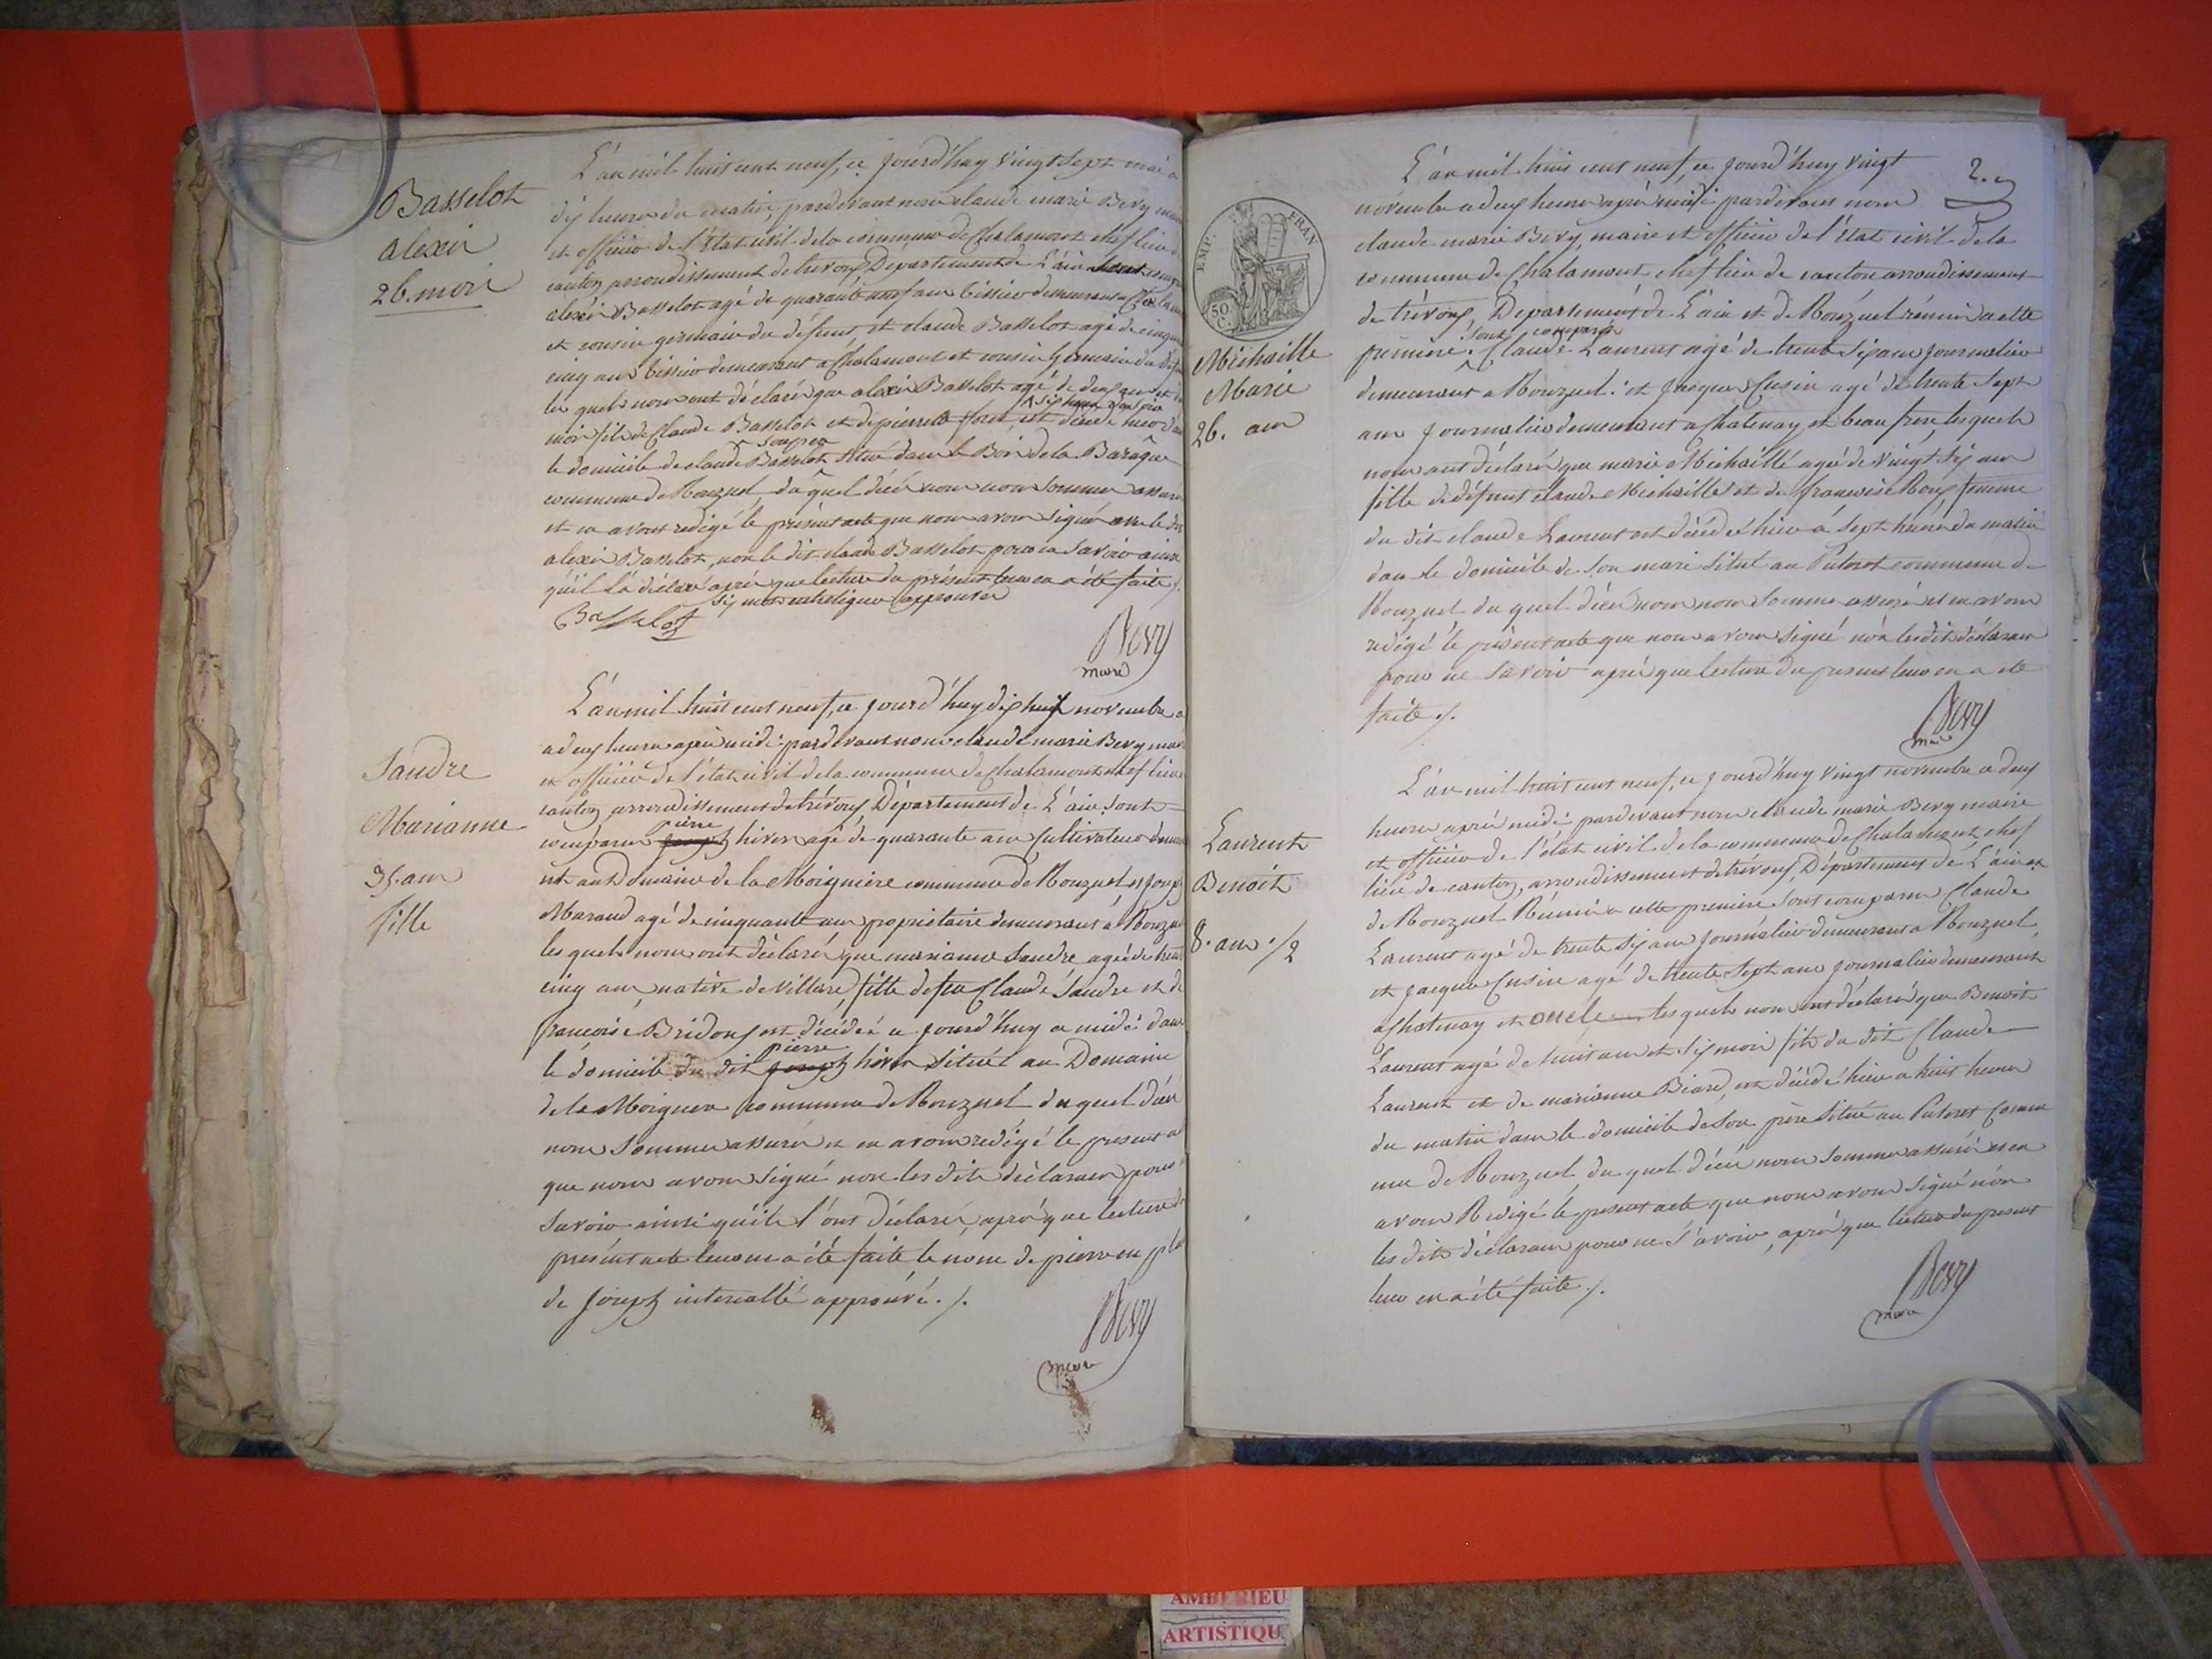 Basselot
alexis
26. mois
L'an mil huit cent neuf, ce jourd'huy vingt sept mai a
dix heures du matin, pardevant nous claude marie Bevy maire
et officier de l'état civil de la commune de Chalamont chef lieu de
canton arrondissement de trévoux Departement de L'ain sont comparus
alexis Basselot agé de quarante neuf ans tissier demeurant a Chalamont
et cousin germain du défunt, et claude Basselot agé de cinquante
cinq ans tissier demeurant a Chalamont et cousin germain du défunt
les quels nous ont déclaré que alexis Basselot agé de deux ans et deux
a six heures d'un soir
mois fils de Claude Basselot et de pierrette foret est décédé hier dans
son pere
le domicile de claude Basselot situé dans le Bois de la Baraque
commune de Rouzuel, du quel décé nous nous sommes assuré
et en avons redigé le présent acte que nous avons signé avec le dit
alexis Basselot, non le dit claude Basselot pour ne savoir ainsi
qu'il l'a déclaré après que lecture du présent leur en a été faite ./.
six mots interligne approuvés
Basselot
Bevy
maire
Sandre
Marianne
35. ans
fille
L'an mil huit cent neuf, ce jourd'huy dix huit novembre
a deux heures après midi pardevant nous claude marie Bevy maire
et officier de l'état civil de la commune de Chalamont chef lieu de
canton, arrondissement de trévoux Département de L'ain sont
pierre
comparus joseph hivers agé de quarante ans Cultivateur demeur
ant au Domaine de la Moigniere commune de Rouzuel et joseph
Maraud agé de cinquante ans propriétaire demeurant a Rouzuel
les quels nous ont déclaré que marianne Sandre agée de trente
cinq ans, native de villars, fille de feu Claude Sandre et de
francoise Bridoux est décédée ce jourd'huy a midi dans
pierre
le domicile du dit joseph hivers situé au Domaine
de la Moignere commune de Rouzuel du quel décé
nous sommes assuré et en avons redigé le present acte
que nous avons signé non les dits déclarans pour
savoir ainsi qu'ils l'ont déclaré, après que lecture du
présent acte leur en a été faite le nom de pierre en place
de joseph intercallé approuvé ./.
Bevy
maire
2.e
EMP. FRAN
50 C.
Michaille
Marie
26. ans
L'an mil huit cent neuf, ce jourd'huy vingt
novembre a deux heures après midi pardevant nous
claude marie Bevy, maire et officier de l'état civil de la
commune de Chalamont, chef lieu de canton arrondissement
de trévoux, Departement de L'ain et de Rouzuel réuni a cette
sont comparus
premiere Claude Laurent agé de trente six ans journalier
demeurant a Rouzuel. et jacques Cusin agé de trente sept
ans journalier demeurant a Chatenay, et beau frere les quels
nous ont déclaré que marie Michaille agée de vingt six ans
fille de défunt claude Michaille et de francoise Roux femme
du dit claude Laurent est décédée hier a sept heures du matin
dans le domicile de son mari situé au Putoret commune de
Rouzuel, du quel décé nous nous sommes assuré et en avons
redigé le présent acte que nous avons signé non les dits déclarans
pour ne savoir après que lecture du present leur en a été
faite ./.
Bevy
maire
Laurent
Benoit
8. ans 1/2
L'an mil huit cent neuf, ce jourd'huy vingt novembre a deux
heures après midi pardevant nous claude marie Bevy maire
et officier de l'état civil de la commune de Chalamont, chef
lieu de canton, arrondissement de trévoux, Département de L'ain et
de Rouzuel Réuni a cette premiere sont comparus Claude
Laurent agé de trente six ans journalier demeurant a Rouzuel,
et jacques Cusin agé de trente sept ans journalier demeurant
a Chatenay et oncle les quels nous ont déclaré que Benoit
Laurent agé de huit ans et six mois fils du dit Claude
Laurent et de marianne Biard, est décédé hier a huit heures
du matin dans le domicile de son père situé au Putoret Commu
ne de Rouzuel, du quel décé nous sommes assuré et en
avons Redigé le present acte que nous avons signé non
les dits déclarans pour ne savoir, après que lecture du present
leur en a été faite ./.
Bevy
maire
AMBERIEU
ARTISTIQU